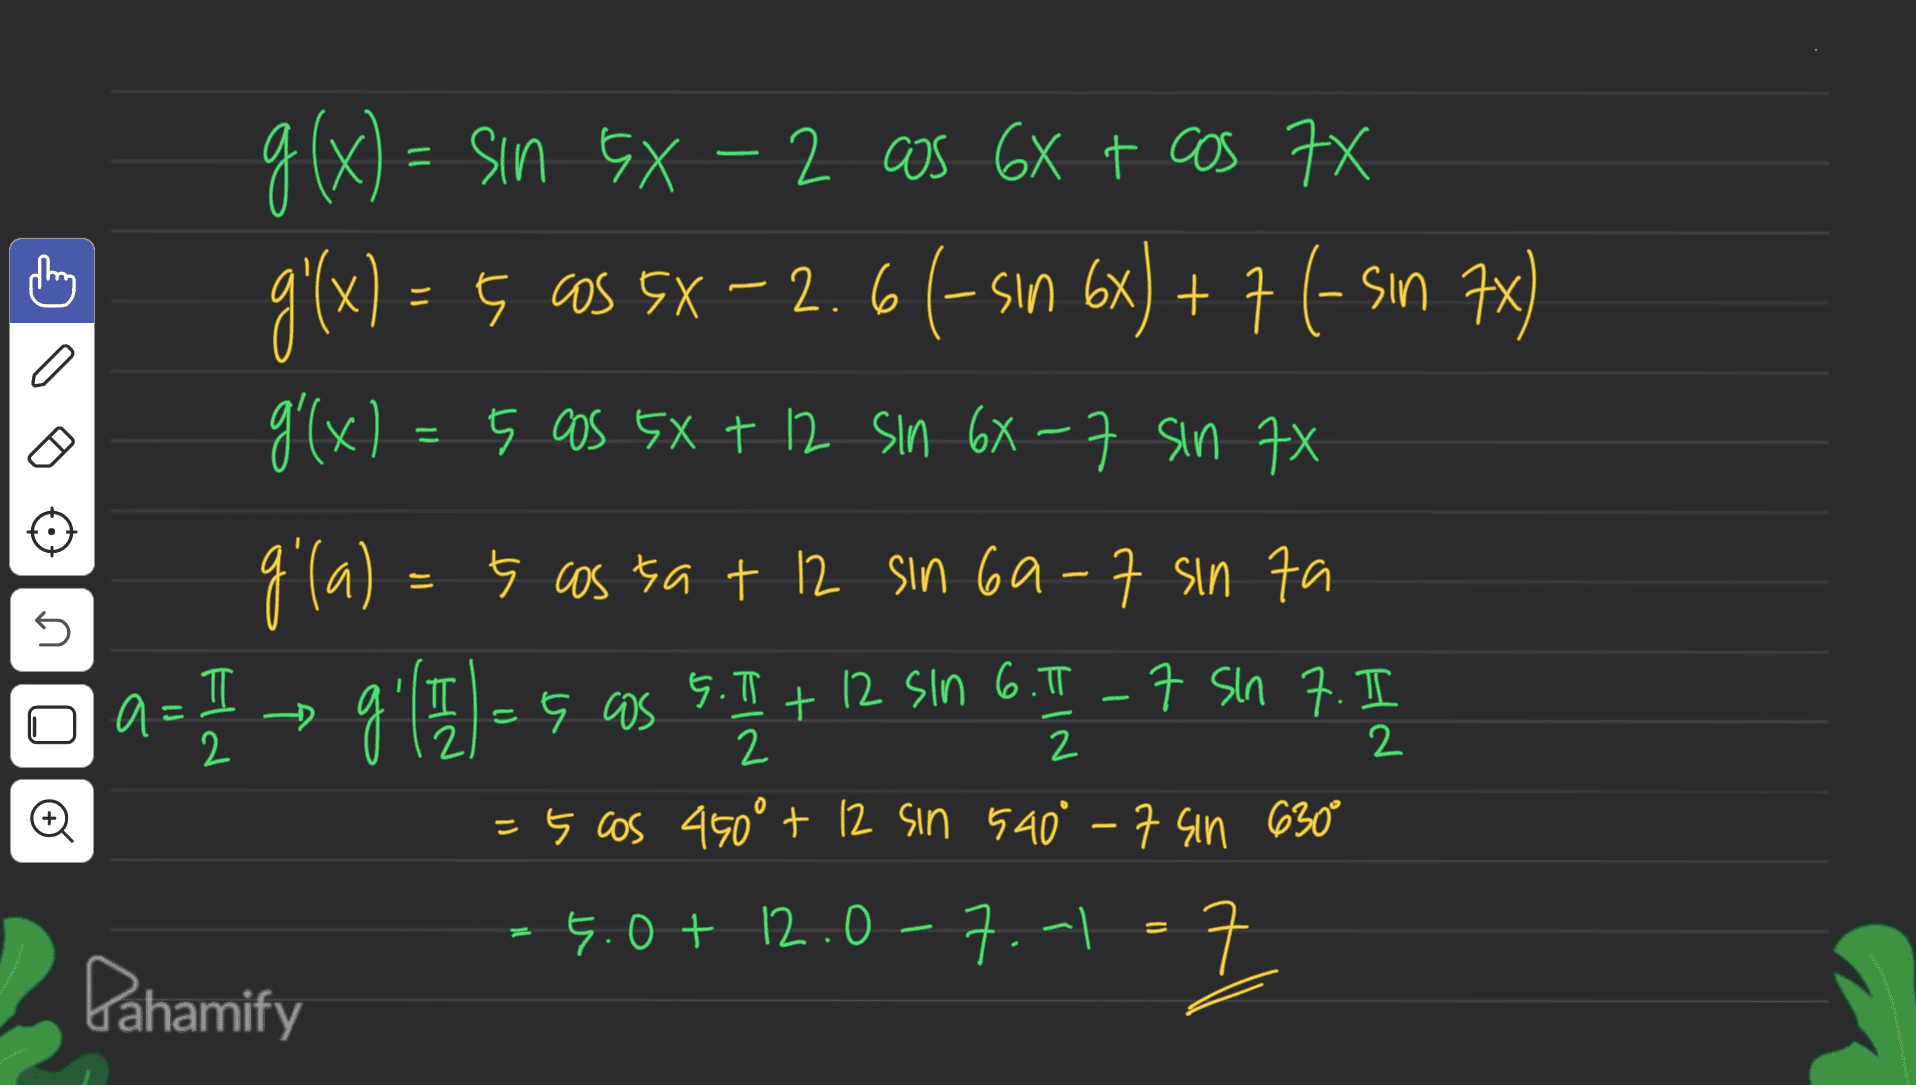 g(x) = sin 5x - 2 cos 6x + cos 7x
g'(x) = 5 cos 5x - 2.6 (-sin 6x) + 7 (-sin 7x)
g'(x) = 5 cos 5x + 12 sin 6x - 7 sin 7x
g'(a) = 5 cos 5a + 12 sin 6a - 7 sin 7a
a = π/2 → g'(π/2) = 5 cos 5.π/2 + 12 sin 6.π/2 - 7 sin 7.π/2
= 5 cos 450° + 12 sin 540° - 7 sin 630°
= 5.0 + 12.0 - 7.-1 = 7
Pahamify